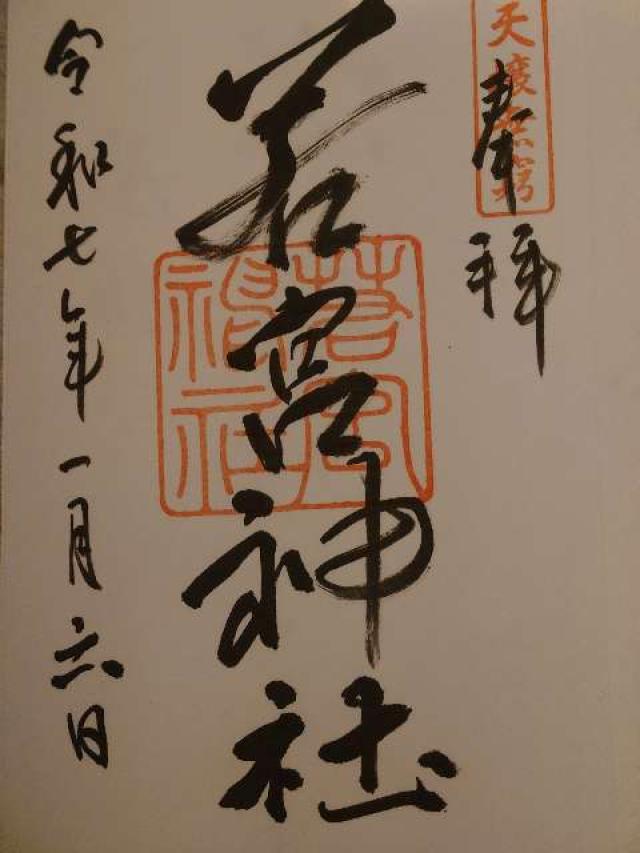 天壌無窮
奉拝
若宮神社
若宮神社
令和七年一月六日